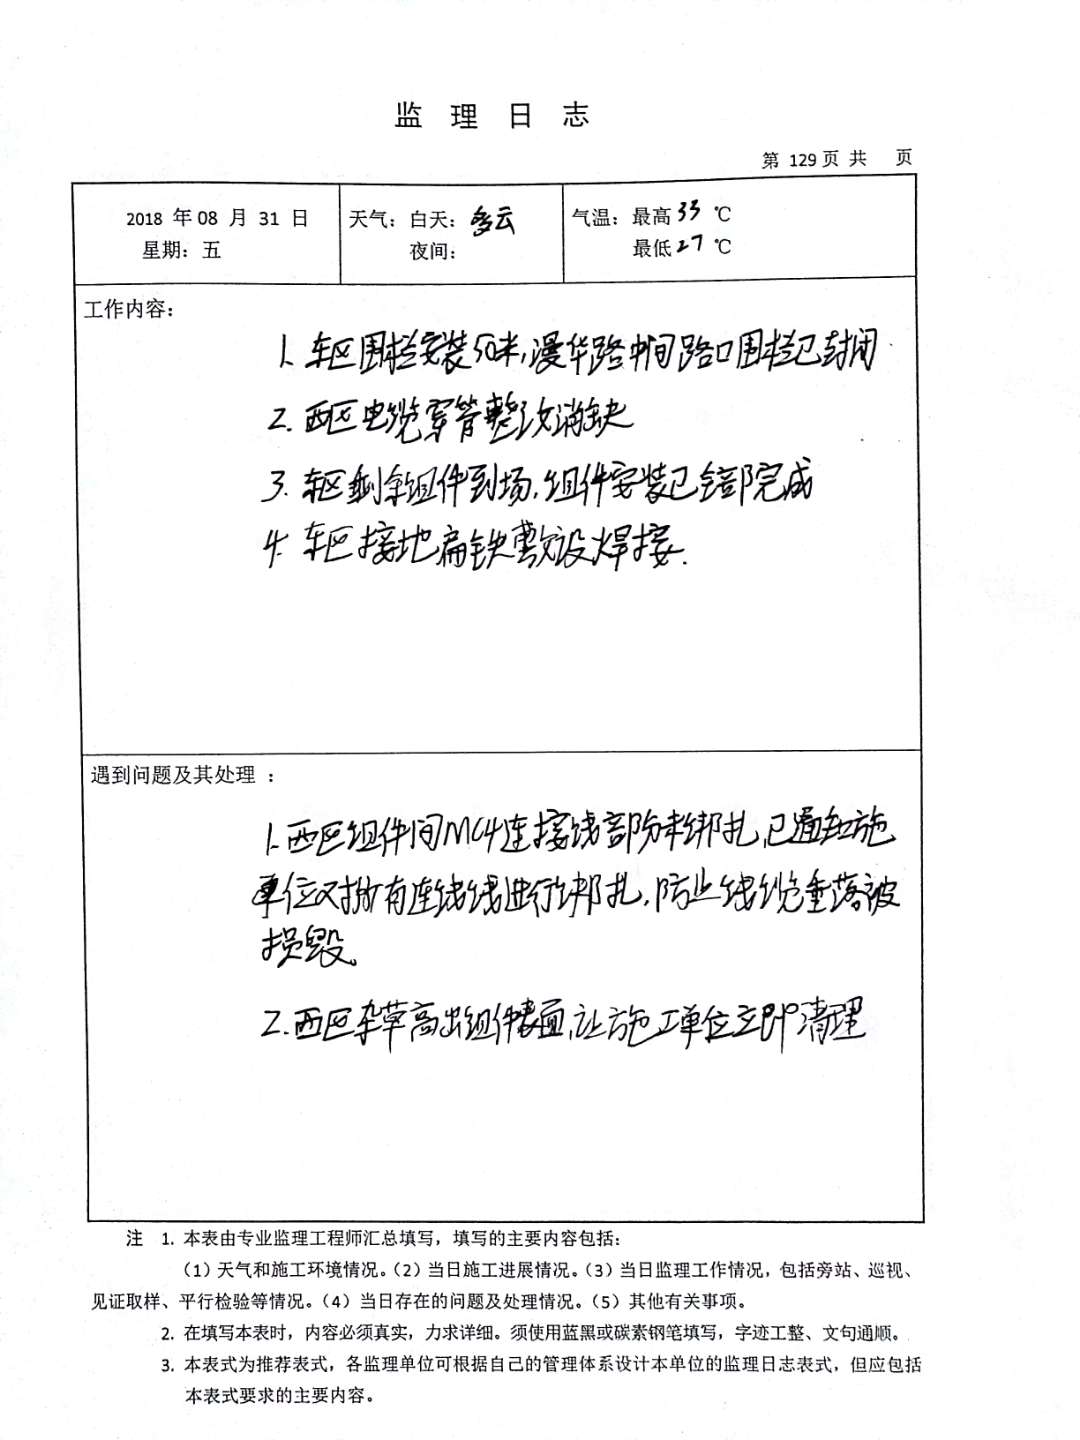 监 理 日 志
第 129 页 共 页
2018 年 08 月 31 日
星期：五
天气：白天：多云
夜间：
气温：最高 33 ℃
最低 27 ℃
工作内容：
1. 东区围栏安装50米，漫华路中间路口围栏已封闭
2. 西区电缆穿管整改消缺
3. 东区剩余组件到场，组件安装已全部完成
4. 东区接地扁铁敷设焊接.
遇到问题及其处理 ：
1. 西区组件间MC4连接线部分未绑扎，已通知施
单位对所有连接线进行绑扎，防止线缆垂落被
损毁。
2. 西区杂草高出组件表面，让施工单位立即清理
注 1. 本表由专业监理工程师汇总填写，填写的主要内容包括：
（1）天气和施工环境情况。（2）当日施工进展情况。（3）当日监理工作情况，包括旁站、巡视、
见证取样、平行检验等情况。（4）当日存在的问题及处理情况。（5）其他有关事项。
2. 在填写本表时，内容必须真实，力求详细。须使用蓝黑或碳素钢笔填写，字迹工整、文句通顺。
3. 本表式为推荐表式，各监理单位可根据自己的管理体系设计本单位的监理日志表式，但应包括
本表式要求的主要内容。